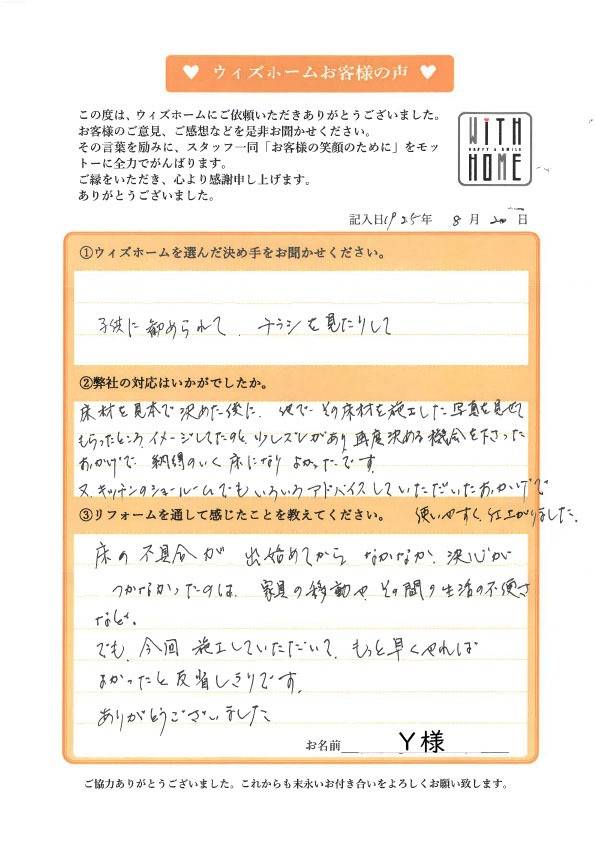 ♥ ウィズホームお客様の声 ♥
この度は、ウィズホームにご依頼いただきありがとうございました。
お客様のご意見、ご感想などを是非お聞かせください。
その言葉を励みに、スタッフ一同「お客様の笑顔のために」をモッ
トーに全力でがんばります。
ご縁をいただき、心より感謝申し上げます。
ありがとうございました。
WITH
HAPPY & SMILE
HOME
記入日 1925年 8月 20日
①ウィズホームを選んだ決め手をお聞かせください。
子供に勧められて、チラシを見たりして
②弊社の対応はいかがでしたか。
床材を見本で決めた後に、他でその床材を施工した写真を見せて
もらったところ、イメージしてたのと少しズレがあり再度決める機会を下さった
おかげで、納得のいく床になりよかったです。
又、キッチンのショールームでもいろいろアドバイスしていただいたおかげで
使いやすく仕上がりました。
③リフォームを通して感じたことを教えてください。
床の不具合が出始めてからなかなか決心が
つかなかったのは、家具の移動や、その間の生活の不便さ
など。
でも、今回施工していただいて、もっと早くやれば
よかったと反省しきりです。
ありがとうございました
お名前 Y様
ご協力ありがとうございました。これからも末永いお付き合いをよろしくお願い致します。